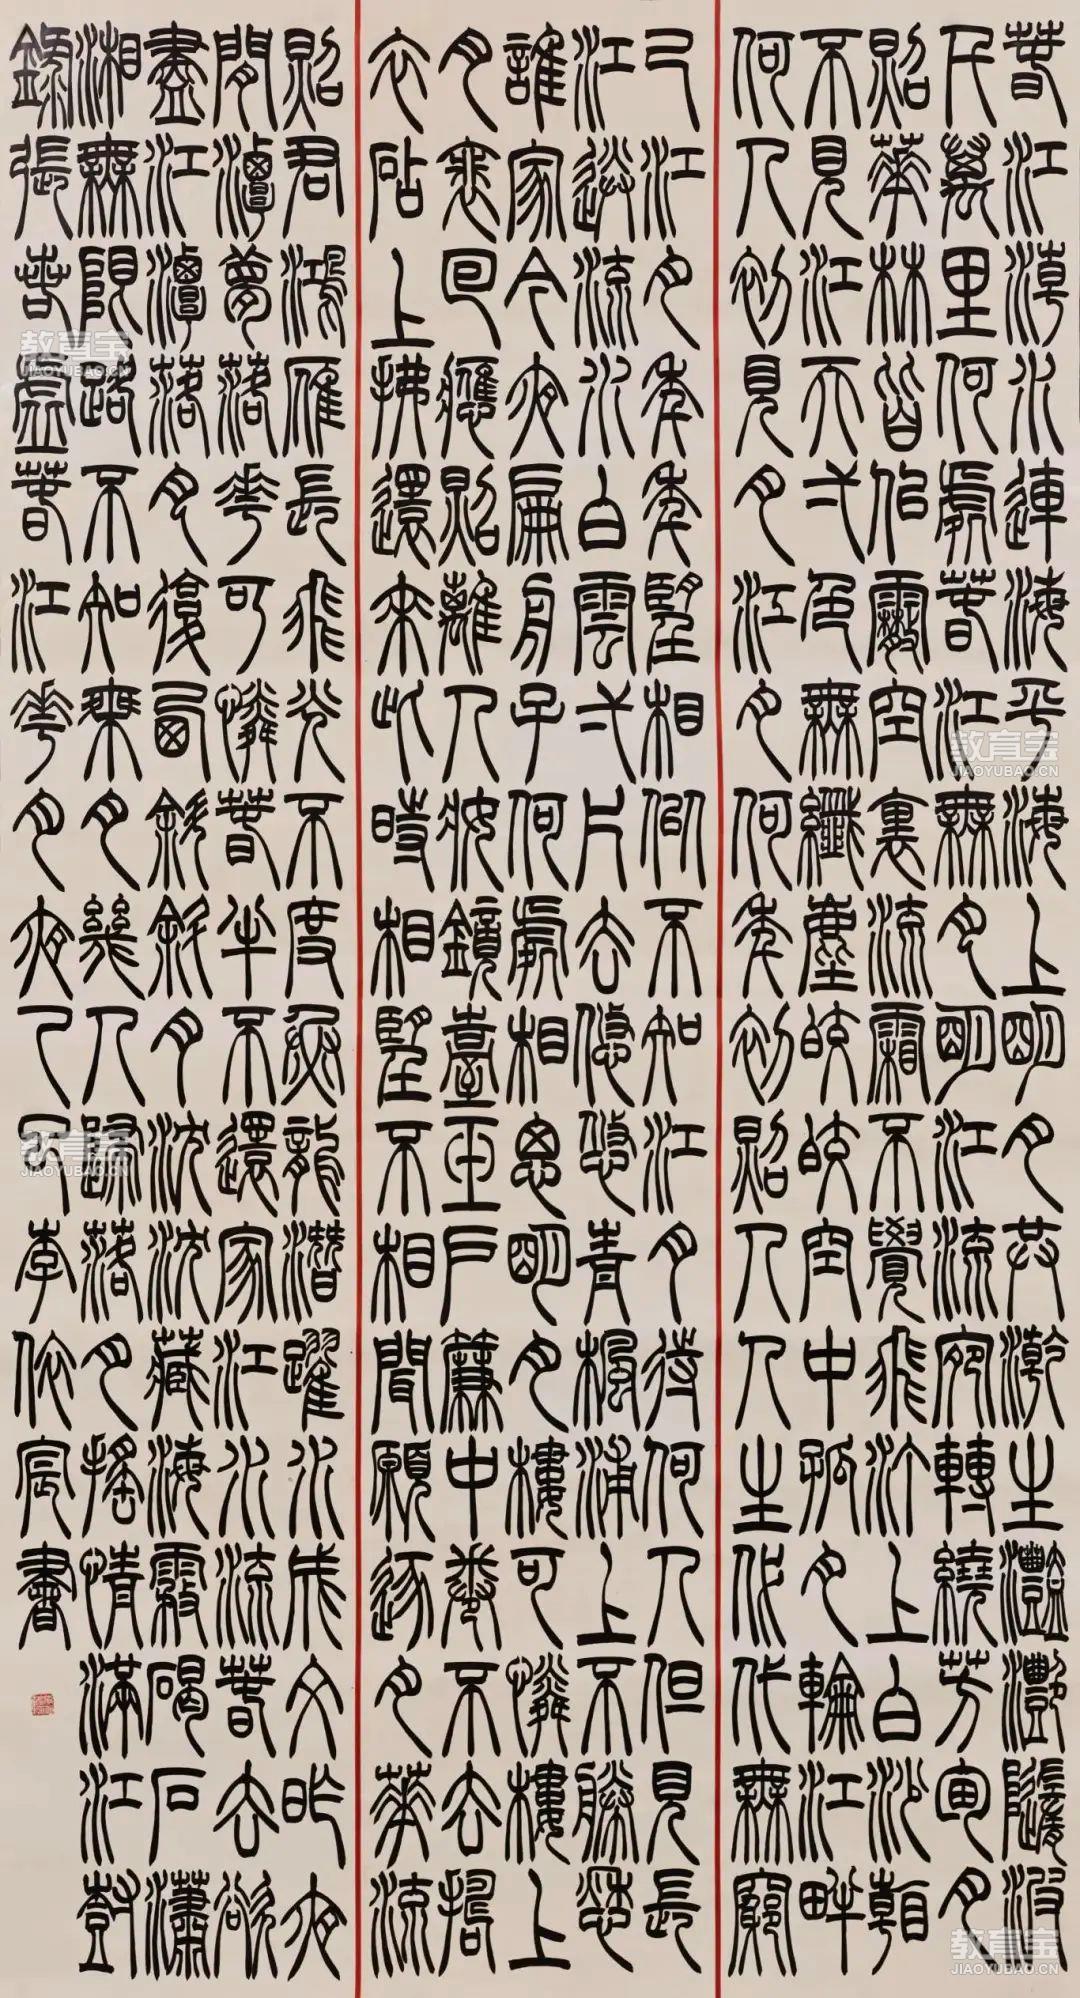 春江潮水連海平海上明月共潮生灩灩隨波
千萬里何處春江無月明江流宛轉繞芳甸月
照華林皆似霰空裏流霜不覺飛汀上白沙看
不見江天一色無纖塵皎皎空中孤月輪江畔
何人初見月江月何年初照人人生代代無窮
已江月年年望相似不知江月待何人但見長
江送流水白雲一片去悠悠青楓浦上不勝愁
誰家今夜扁舟子何處相思明月樓可憐樓上
月裴回應照離人妝鏡臺玉戶簾中卷不去擣
衣砧上拂還來此時相望不相聞願逐月華流
照君鴻雁長飛光不度魚龍潛躍水成文昨夜
閒潭夢落花可憐春半不還家江水流春去欲
盡江潭落月復西斜斜月沈沈藏海霧碣石瀟
湘無限路不知乘月幾人歸落月搖情滿江樹
錄張若虛春江花月夜乙巳李依宸書
教育宝
JIAOYUBAO.CN
教育宝
JIAOYUBAO.CN
教育宝
JIAOYUBAO.CN
教育宝
JIAOYUBAO.CN